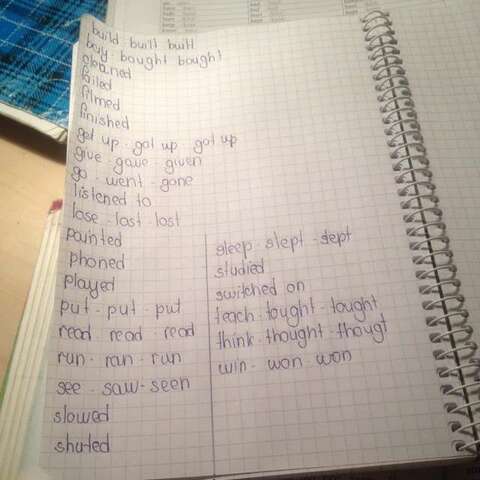 build - built built
buy - bought bought
cleaned
failed
filmed
finished
got up - got up - got up
give - gave - given
go - went - gone
listened to
lose - lost - lost
painted
phoned
played
put - put - put
read - read - read
run - ran - run
see - saw - seen
slowed
shuted
sleep - slept - slept
studied
switched on
teach - tought - tought
think - thought - thougt
win - won - won